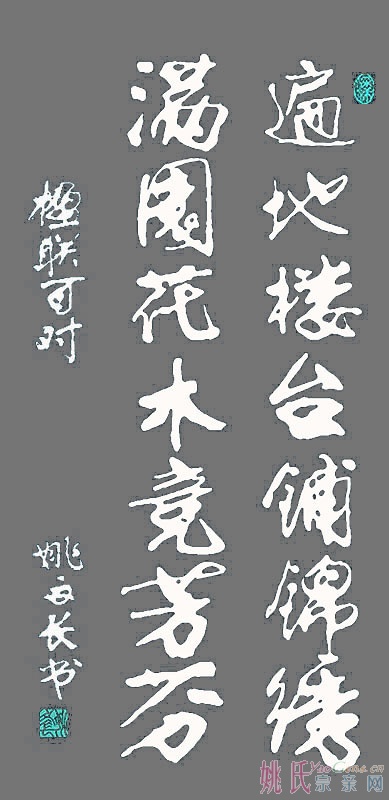 遍地楼台铺锦绣
满园花木竞芳芬
楹联一对
姚文长书
姚氏宗亲网
YaoGens.cn